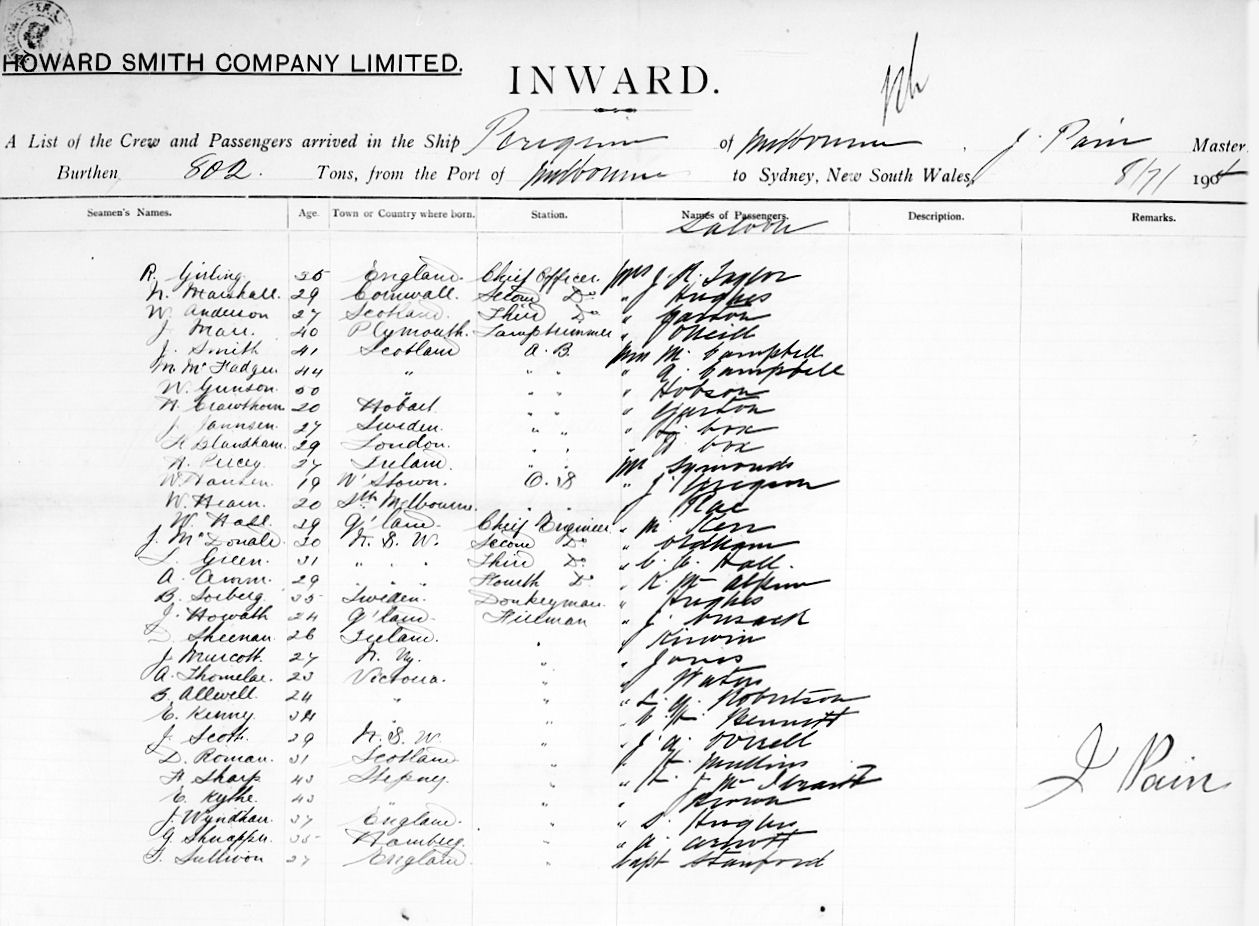 HOWARD SMITH COMPANY LIMITED.
INWARD.
A List of the Crew and Passengers arrived in the Ship Peregrine of Melbourne, J. Pain Master
Burthen 802. Tons, from the Port of Melbourne to Sydney, New South Wales, 8/7/ 190
Seamen's Names. Age. Town or Country where born. Station. Names of Passengers. Description. Remarks.
Saloon
R. Girling 35 England. Chief Officer. Mrs J. R. Taylor
N. Marshall. 29 Cornwall. Second Do " Hughes
W. Anderson 27 Scotland. Third Do "
J. Marr. 40 Plymouth. Lamptrimmer " O'Neill
J. Smith 41 Scotland A. B. Miss M. Campbell
44 " " " " Campbell
W. Gunson 50 " " " " Hobson
20 Hobart " " " Garton
J. Jannsen 27 Sweden. " " " Box
Blandham. 29 London. " " " Box
27 Ireland. " " Mr Symonds
W. Hansen 19 W'Stown. O. S " J.
W. Hearn. 20 Sth Melbourne. " " " Rae
W. Hall. 39 Q'land. Chief Engineer " M. Kerr
J. McDonald 30 N. S. W. Second Do " Oldham
Green. 31 " " " Third Do " Hall.
A. 29 " " " Fourth Do "
B. Soeberg. 35 Sweden. Donkeyman. " Hughes
J. Howath 24 Q'land. Fireman " J. Cusack
Sheenan 26 Ireland. " " Kirwin
J. Murcott. 27 " " Jones
A. 23 Victoria. " " Waters
B. Allwell. 24 " " " Robertson
E. Kenny. " " " Bennett
J. Scott. 29 N. S. W. " " J.
D. Roman. 31 Scotland " Mullins
Sharp. 43 Stepney. " "
E. Kythe. 43 " " " Brown
J. Wyndham. 37 England. " " S. Hughes
G. 35 Hamburg. " "
Sullivan 37 England. " Capt Stanford
J Pain